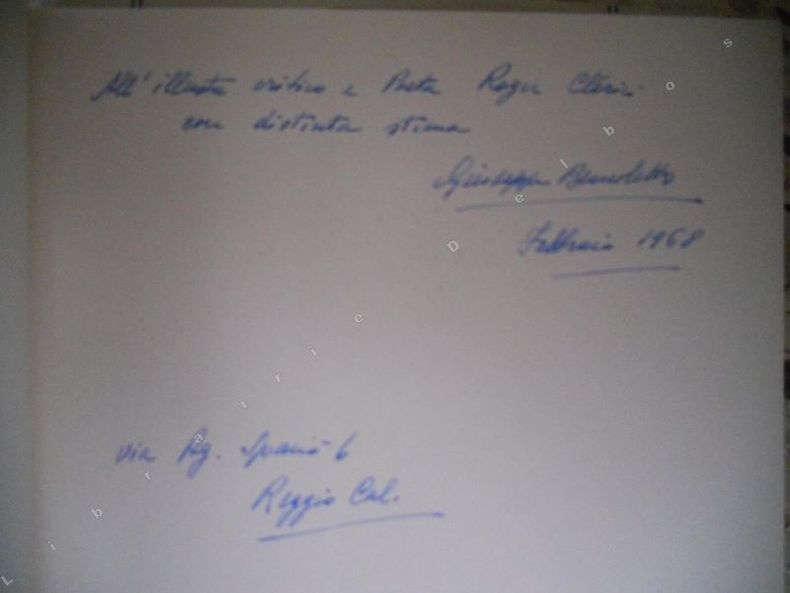 All'illustre critico e Poeta Roger Clérici
con distinta stima
Giuseppe Benedetto
Febbraio 1968
via Ag. Spanò 6
Reggio Cal.
Librairie Delbos